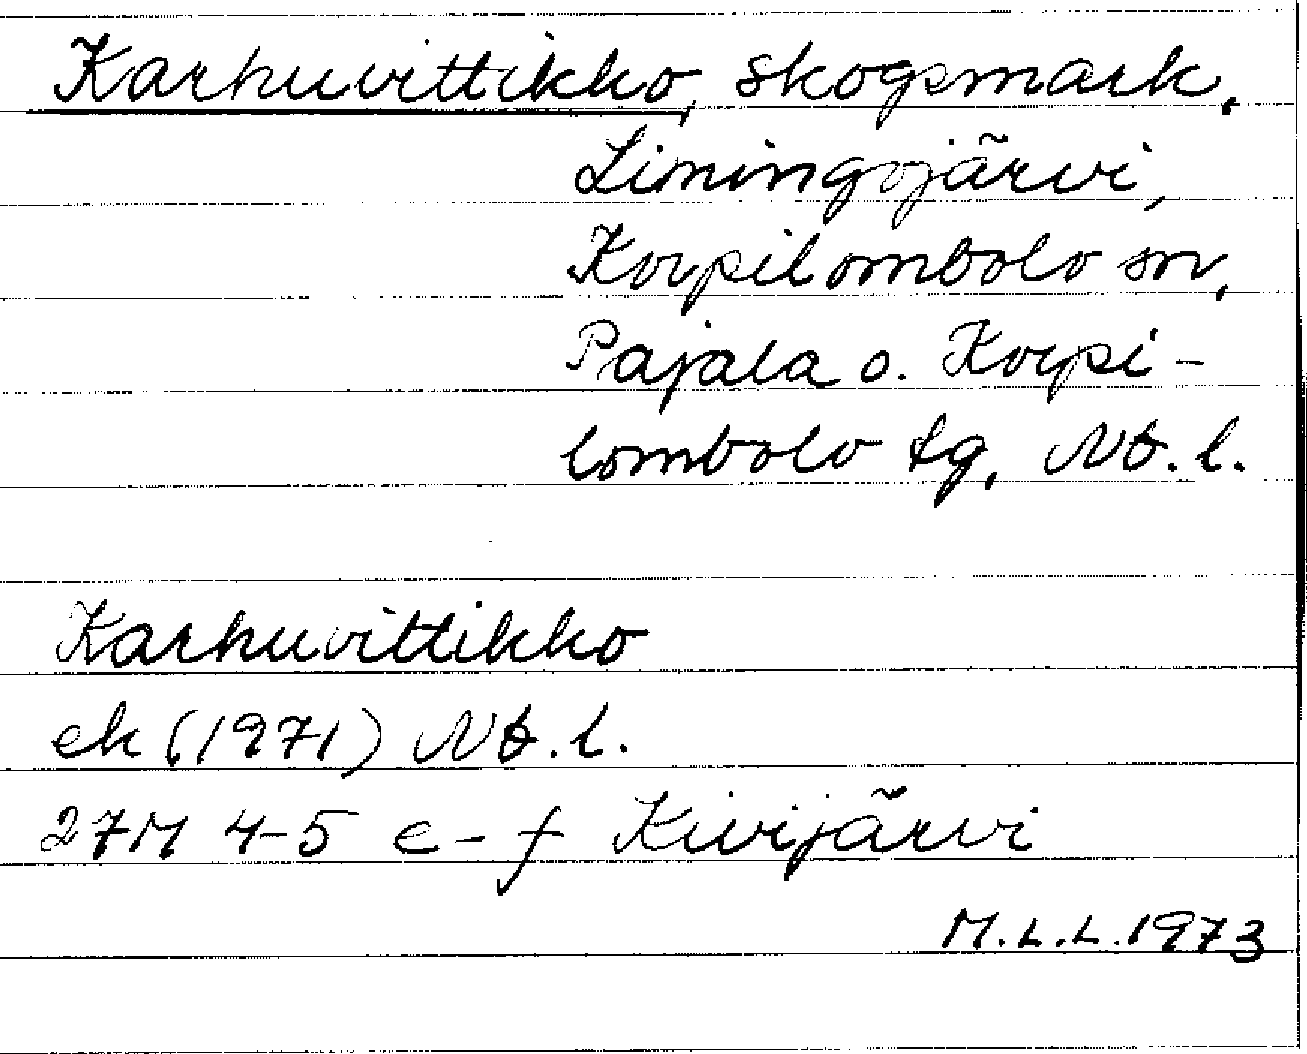 Karhuvittikko, skogsmark,
Liningojärvi,
Korpilombolo sn,
Pajala o. Korpi-
lombolo tg, Nb. l.
Karhuvittikko
ek (1971) Nb. l.
27M 4-5 e-f Kivijärvi
M.L.L. 1973